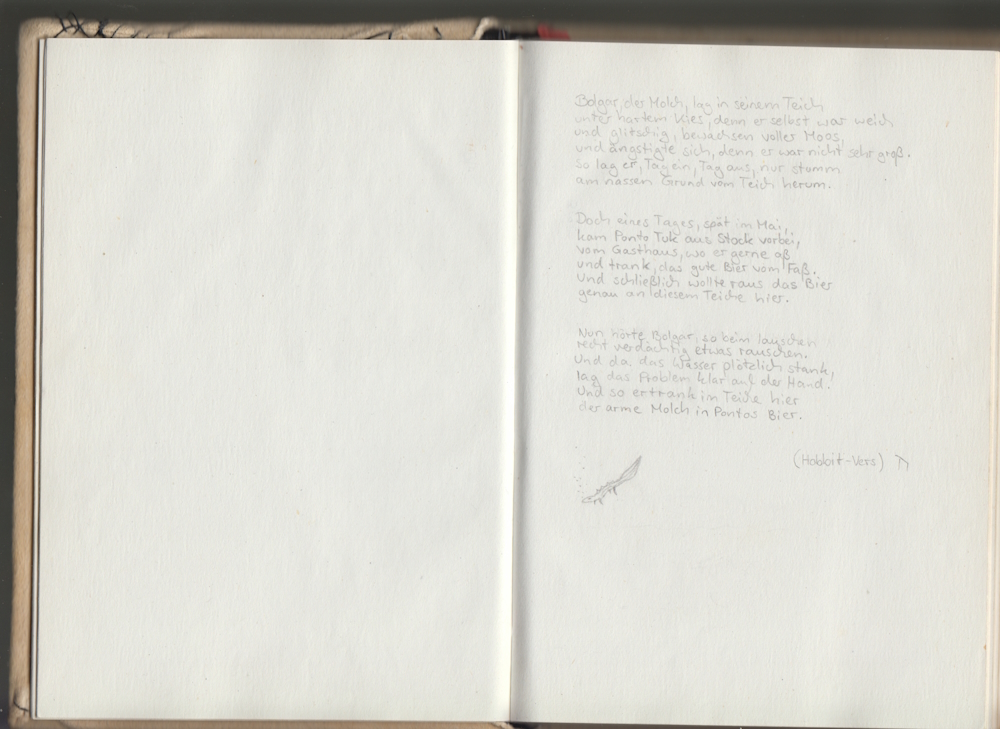 Bolgar, der Molch, lag in seinem Teich
unter hartem Kies, denn er selbst war weich
und glitschig, bewachsen voller Moos,
und ängstigte sich, denn er war nicht sehr groß.
So lag er, Tag ein, Tag aus, nur stumm
am nassen Grund vom Teich herum.
Doch eines Tages, spät im Mai,
kam Ponto Tuk aus Stock vorbei,
vom Gasthaus, wo er gerne aß
und trank, das gute Bier vom Faß.
Und schließlich wollte raus das Bier
genau an diesem Teiche hier.
Nun hörte Bolgar, so beim lauschen
recht verdächtig etwas rauschen.
Und da das Wasser plötzlich stank,
lag das Problem klar auf der Hand.
Und so ertrank im Teiche hier
der arme Molch in Pontos Bier.
(Hobbit-Vers)